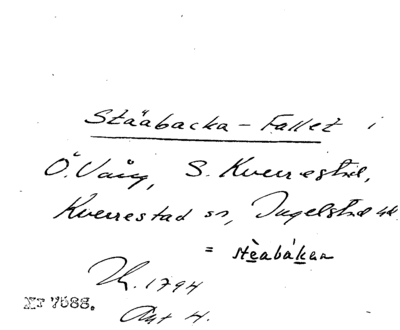 Stääbacka - Fallet i
Ö. Vång, S. Kverrestad,
Kverrestad sn, Ingelstad hd.
= stèabákan
1794
Akt 4.
Nr 7688.